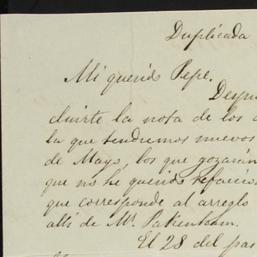 Duplicada
Mi querido Pepe.
Despu
cluirte la nota de los
la que tendremos nuevos
de Mayo, los que gozarán
que no he querido
que corresponde al arreglo
allí de Mr. Pakenham.
El 28 del pas